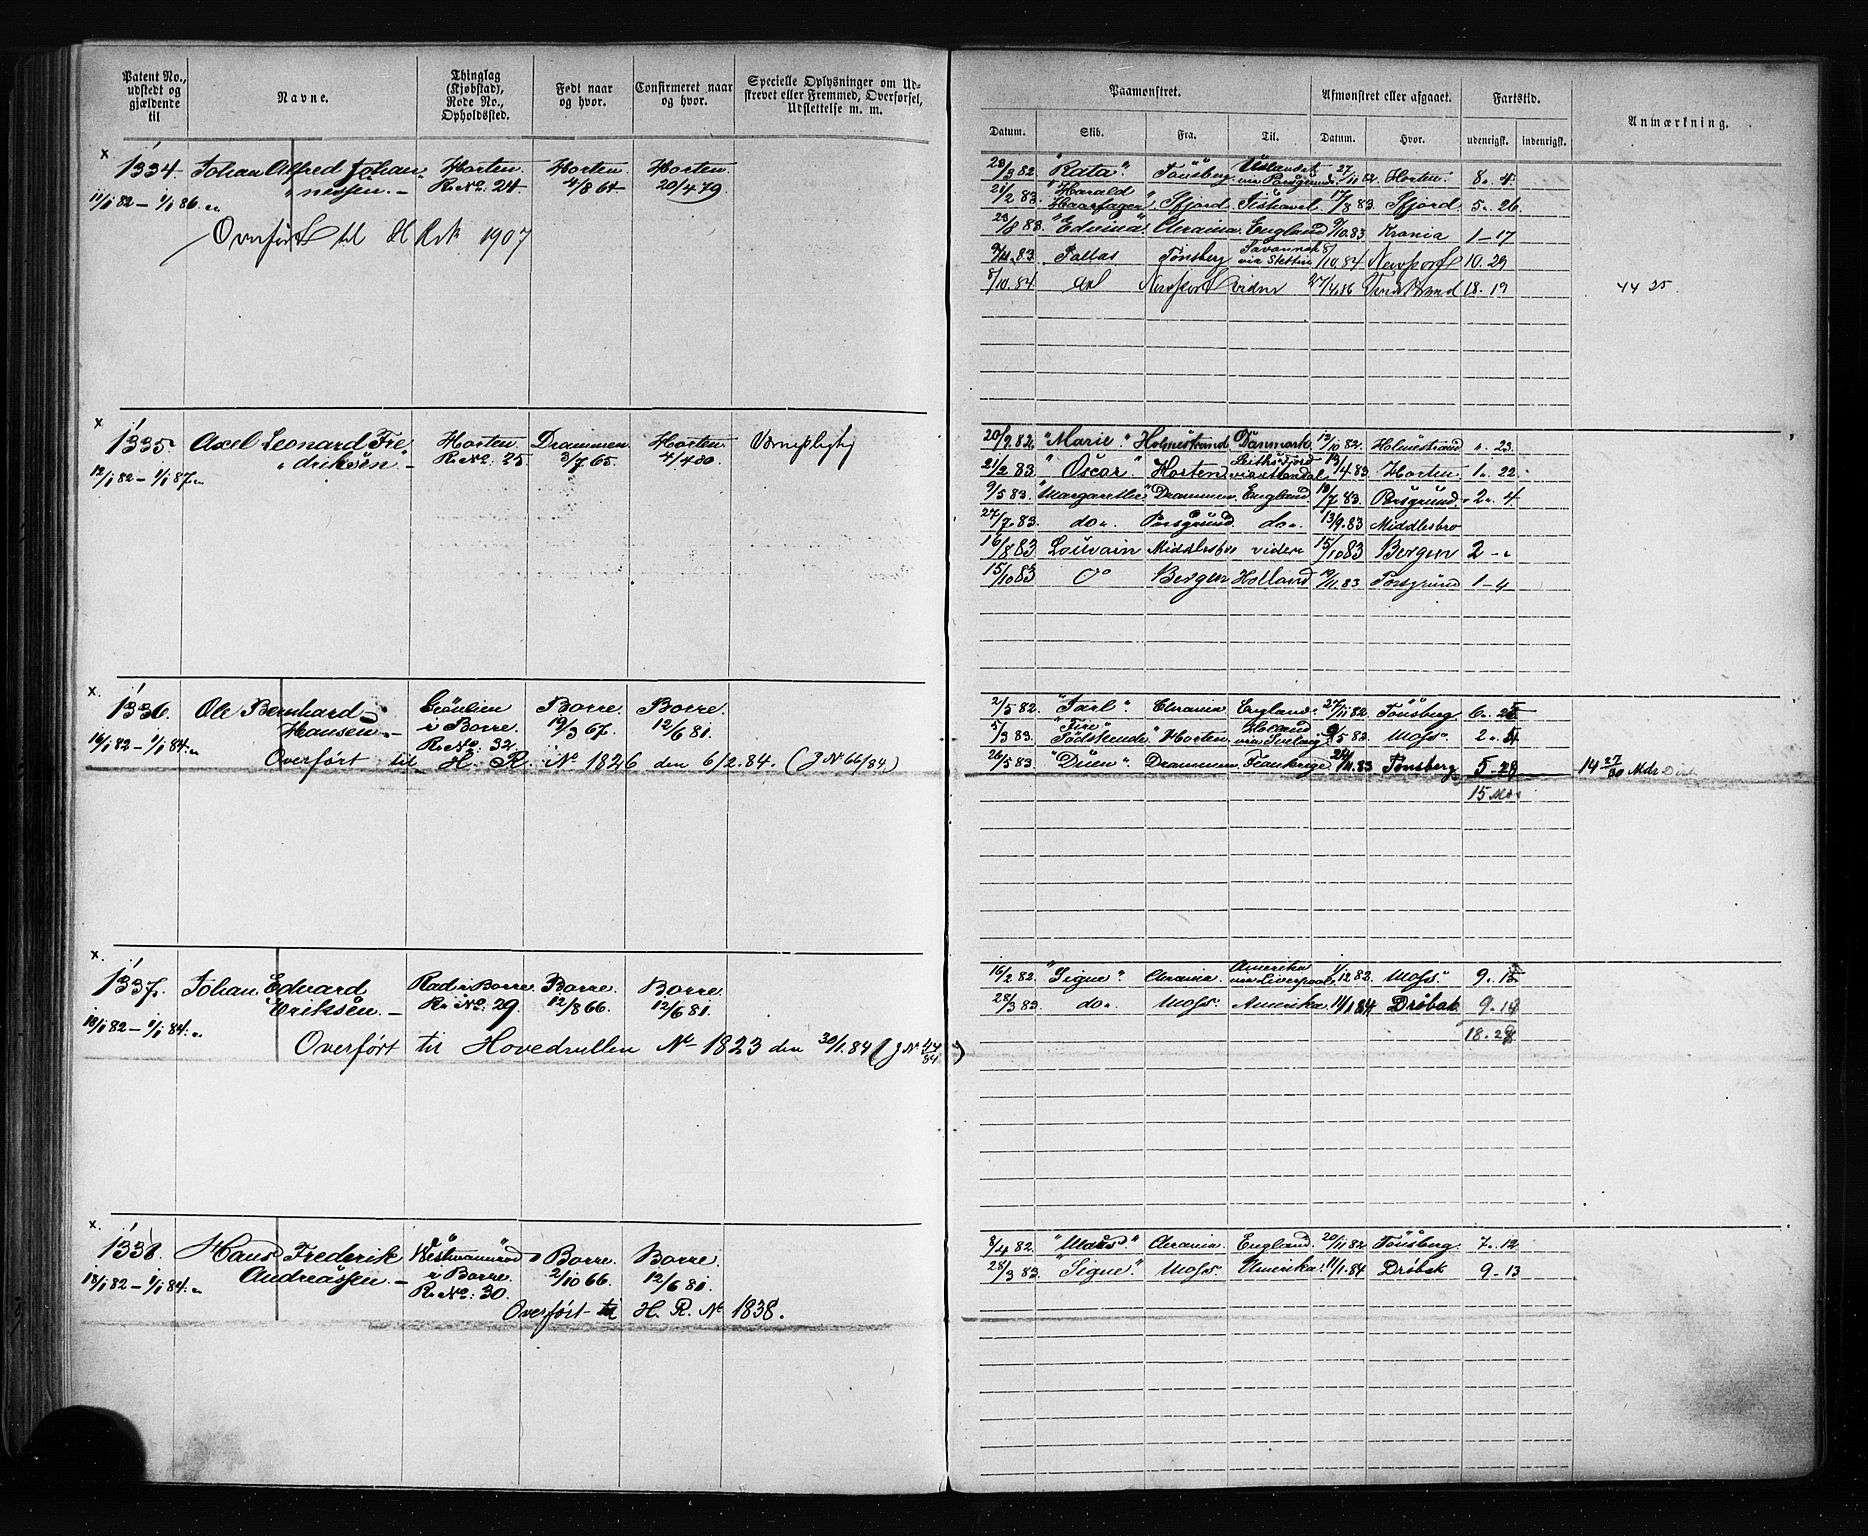 Patent No., udstedt og gjældende til
Navne.
Thinglag (Kjøbstad), Rode No., Opholdssted.
Født naar og hvor.
Confirmeret naar og hvor.
Specielle Oplysninger om Udskrevet eller Fremmed, Overførsel, Udslettelse m. m.
Paamønstret.
Afmønstret eller afgaaet.
Fartstid.
Anmærkning.
Datum. Skib. Fra. Til. Datum. Hvor. udenrigsk. indenrigsk.
x
1334 Johan Alfred Johan- Horten Horten Horten
nessen.- R. No. 24 4/8 64 20/4 79
11/1 82 - 1/1 86
Overført til H Rk 1907
28/3 82 "Rata" Tönsberg 27/11 82 Horten 8. 4.
21/2 83 "Harald Haarfager" Sfjord 17/8 83 Sfjord 5. 26
23/8 83 "Edvina" England 9/10.83 Krania 1-17
83 Pallas Tönsberg Savannah via Stettin 8/10.84 Newport 10. 29
8/10.84 Newport videre 27/4.86 18. 19 44 25
x
1335. Axel Leonard Fre- Horten Drammen Horten Værnepligtig
driksen R. No: 25 3/7 65. 4/4 80.
12/1 82 - 1/1 87
20/9 82. "Marie" Holmestrand Danmark 13/10 82. Holmestrand 23.
21/2 83 "Oscar" Horten 19/4 83. Horten 1. 22
9/5 83. "Margarethe" Drammen England 10/7 83. Porsgrund 2. 4.
27/7.83. do. Porsgrund. do. 13/9.83 Middlesbro
16/8 83 Louvain Middlesbro videre 15/10 83 Bergen 2 -
15/10 83 Do Bergen Holland 19/11.83 Porsgrund 1-4
x.
1336. Ole Bernhard Borre. Borre.
Hansen.- i Borre. 19/3 67. 12/6 81.
R. No: 32
16/1 82 - 1/1 84.
Overført til H. R. No 1826 den 6/2.84. (J No 66/84)
2/5 82. "Jarl" England 27/11 82 Tönsberg
5/3 83. Horten Holland 83 Moss.
26/5 83 "Duen" Drammen Frankrige 83 Tønsberg 5-28 14 27/30 Mdr
15 Md
x.
1337. Johan Edvard Rad i Borre. Borre. Borre.
Eriksen.- R. No. 29. 12/8 66. 12/6 81.
18/1 82 - 1/1 84.
Overført til Hovedrullen No 1823 den 30/1.84 (J No 44/84)
16/2 82. "Signe" Amerika via Liverpool 1/12 82. Moss
28/3 83. do. Moss. Amerika. 11/1 84 Drøbak 9.
18.28
x.
1338. Hans Frederik Westmannrød Borre. Borre.
Andreassen.- i Borre. 2/10 66. 12/6 81.
R. No: 30.
18/1 82 - 1/1 84.
Overført til H. R. No 1838.
8/4 82. England. 20/11 82 Tönsberg. 7. 12
28/3 83. "Signe" Moss. Amerika. 11/1.84 Drøbak 9. 13